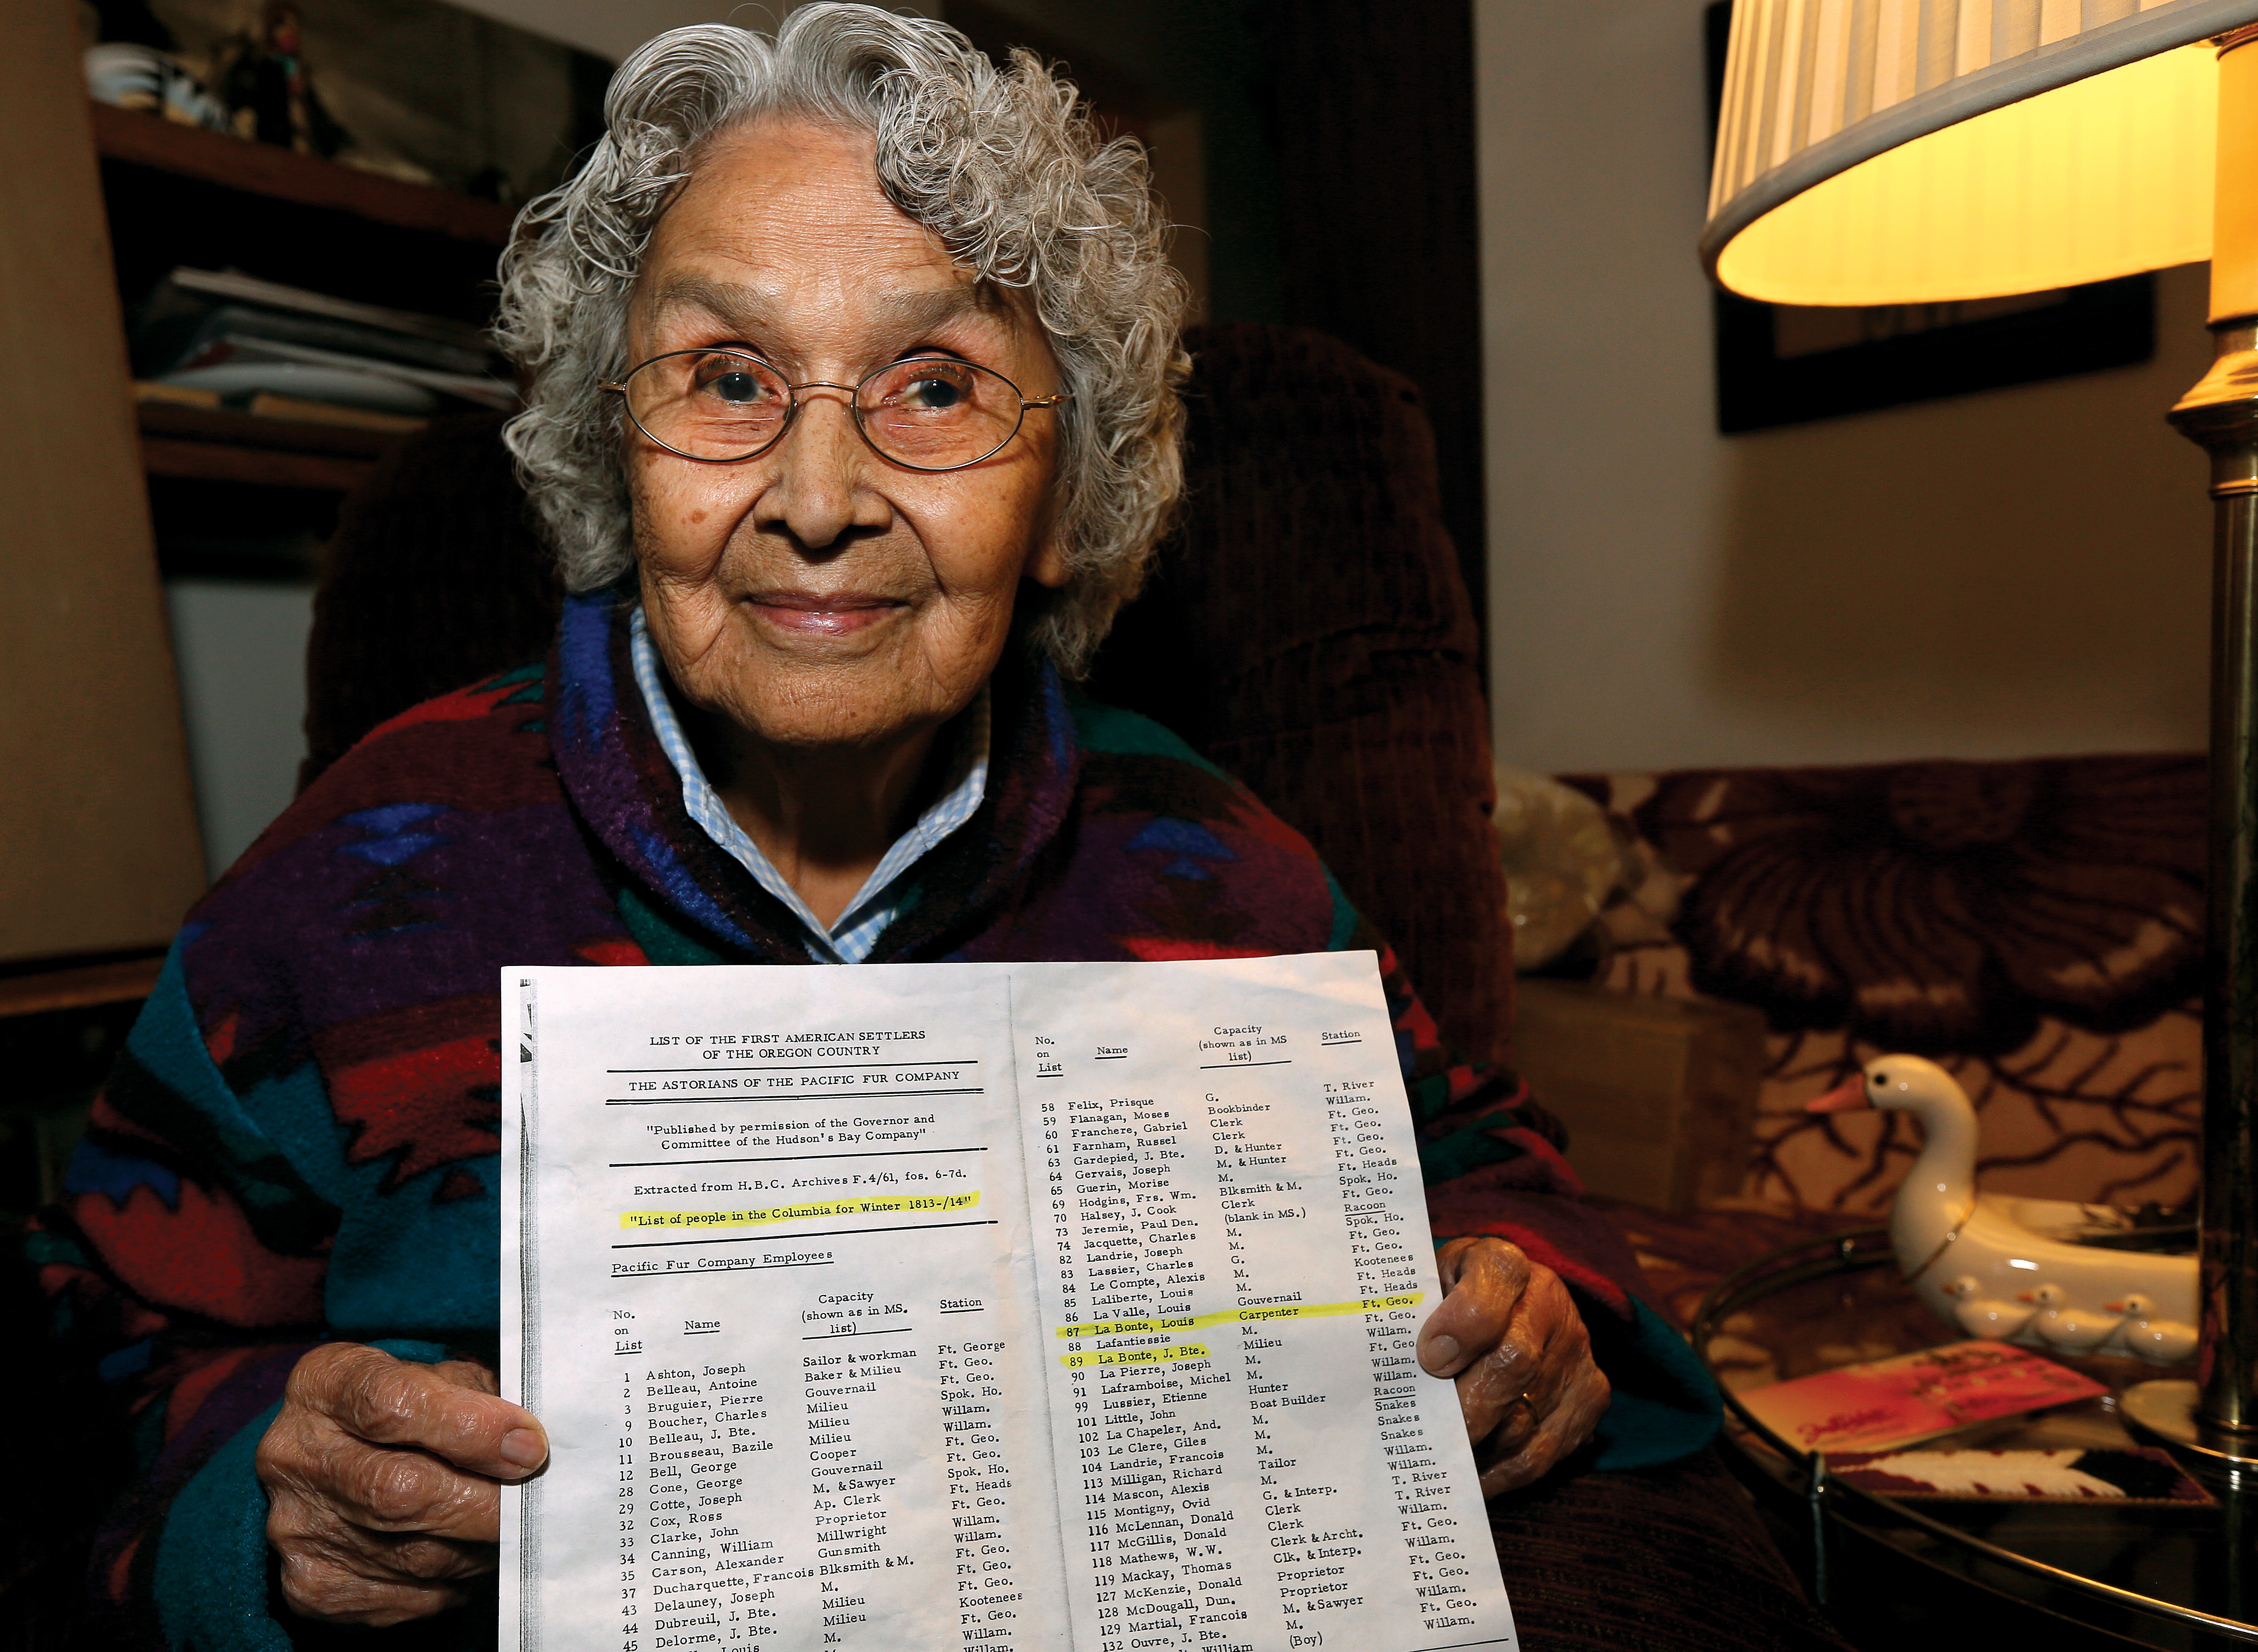 LIST OF THE FIRST AMERICAN SETTLERS
OF THE OREGON COUNTRY
THE ASTORIANS OF THE PACIFIC FUR COMPANY
"Published by permission of the Governor and
Committee of the Hudson's Bay Company"
Extracted from H.B.C. Archives F.4/61, fos. 6-7d.
"List of people in the Columbia for Winter 1813-/14"
Pacific Fur Company Employees
No. on List Name Capacity (shown as in MS. list) Station
1 Ashton, Joseph Sailor & workman Ft. George
2 Belleau, Antoine Baker & Milieu Ft. Geo.
3 Bruguier, Pierre Gouvernail Ft. Geo.
9 Boucher, Charles Milieu Spok. Ho.
10 Belleau, J. Bte. Milieu Willam.
11 Brousseau, Bazile Milieu Willam.
12 Bell, George Cooper Ft. Geo.
28 Cone, George Gouvernail Ft. Geo.
29 Cotte, Joseph M. & Sawyer Spok. Ho.
32 Cox, Ross Ap. Clerk Ft. Heads
33 Clarke, John Proprietor Ft. Geo.
34 Canning, William Millwright Willam.
35 Carson, Alexander Gunsmith Willam.
37 Ducharquette, Francois Blksmith & M. Ft. Geo.
43 Delauney, Joseph M. Ft. Geo.
44 Dubreuil, J. Bte. Milieu Ft. Geo.
45 Delorme, J. Bte. Milieu Kootenees
Louis M. Ft. Geo.
Willam.
No. on List Name Capacity (shown as in MS list) Station
58 Felix, Prisque G. T. River
59 Flanagan, Moses Bookbinder Willam.
60 Franchere, Gabriel Clerk Ft. Geo.
61 Farnham, Russel Clerk Ft. Geo.
63 Gardepied, J. Bte. D. & Hunter Ft. Geo.
64 Gervais, Joseph M. & Hunter Ft. Geo.
65 Guerin, Morise M. Ft. Heads
69 Hodgins, Frs. Wm. Blksmith & M. Spok. Ho.
70 Halsey, J. Cook Clerk Ft. Geo.
73 Jeremie, Paul Den. (blank in MS.) Racoon
74 Jacquette, Charles M. Spok. Ho.
82 Landrie, Joseph M. Ft. Geo.
83 Lassier, Charles G. Ft. Geo.
84 Le Compte, Alexis M. Kootenees
85 Laliberte, Louis M. Ft. Heads
86 La Valle, Louis Gouvernail Ft. Heads
87 La Bonte, Louis Carpenter Ft. Geo.
88 Lafantiessie M. Ft. Geo.
89 La Bonte, J. Bte. Milieu Willam.
90 La Pierre, Joseph M. Ft. Geo
91 Laframboise, Michel M. Willam.
99 Lussier, Etienne Hunter Willam.
101 Little, John Boat Builder Racoon
102 La Chapeler, And. M. Snakes
103 Le Clere, Giles M. Snakes
104 Landrie, Francois M. Snakes
113 Milligan, Richard Tailor Willam.
114 Mascon, Alexis M. Willam.
115 Montigny, Ovid G. & Interp. T. River
116 McLennan, Donald Clerk T. River
117 McGillis, Donald Clerk Willam.
118 Mathews, W.W. Clerk & Archt. Ft. Geo.
119 Mackay, Thomas Clk. & Interp. Willam.
127 McKenzie, Donald Proprietor Ft. Geo.
128 McDougall, Dun. Proprietor Ft. Geo.
129 Martial, Francois M. & Sawyer Willam.
132 Ouvre, J. Bte. M. Ft. Geo.
William (Boy) Willam.